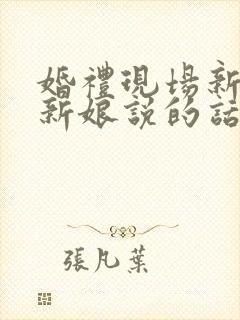 婚禮現場新
新娘説的話
張凡葉